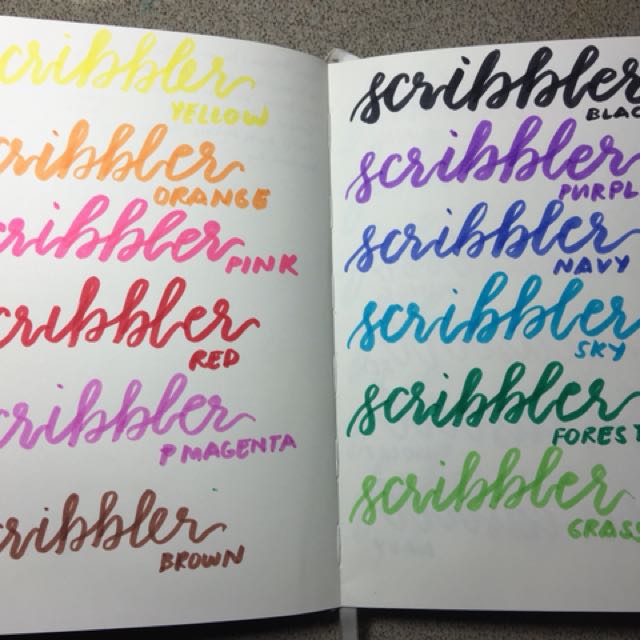 cribbler
YELLOW
cribbler
ORANGE
cribbler
PINK
cribbler
RED
cribbler
P MAGENTA
cribbler
BROWN
scribbler
BLAC
scribbler
PURPL
scribbler
NAVY
scribbler
SKY
scribbler
FOREST
scribbler
GRASS